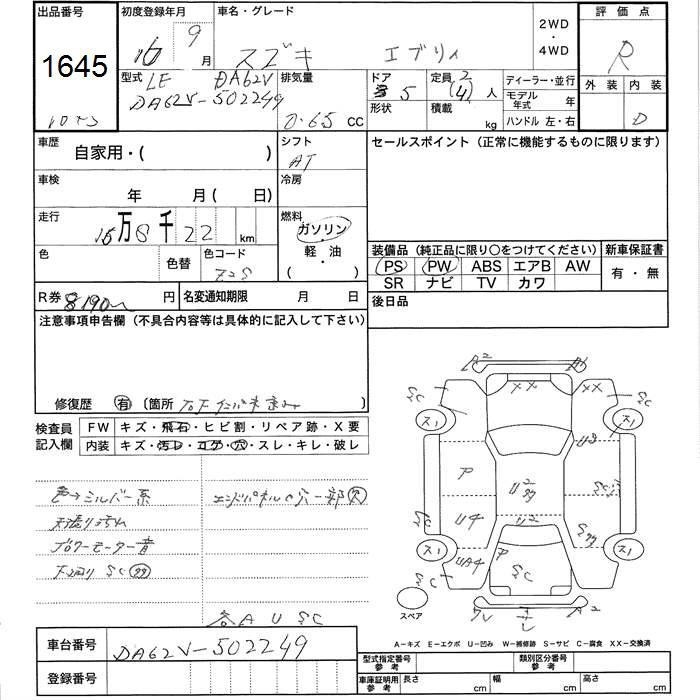 出品番号 初度登録年月 車名・グレード 2WD ・ 4WD 評価点
1645 16 9 月 スズキ エブリィ R
型式 LE DA62V 排気量 ドア 定員 2 ディーラー・並行 外装 内装
DA62V-502249 0.65 CC 5 (4) 人 モデル年式 年 D
形状 積載 kg ハンドル 左・右
車歴 自家用・( ) シフト AT セールスポイント（正常に機能するものに限ります）
車検 年 月( 日) 冷房
走行 16万8千22 km 燃料 ガソリン・軽・油 ( )
色 色替 色コード Z2S
装備品（純正品に限り○をつけてください） 新車保証書
PS PW ABS エアB AW 有・無
SR ナビ TV カワ
R券 8190 円 名変通知期限 月 日 後日品
注意事項申告欄（不具合内容等は具体的に記入して下さい）
修復歴 有 〔箇所
検査員記入欄 FW キズ・飛石・ヒビ割・リペア跡・X要
内装 キズ・汚レ・コゲ・穴・スレ・キレ・破レ
色→シルバー系 エンドパネル穴一部穴
ブロワーモーター音
下回り SC
各 A U SC
A2
XX XX
SC SC
ス1 ス1
U3
ア U2
U4 U2
ス1 ア ス1
UA4 SC
SC
スペア A2
A－キズ E－エクボ U－凹み W－補修跡 S－サビ C－腐食 XX－交換済
車台番号 DA62V-502249
登録番号
型式指定番号 参考 類別区分番号 参考
車庫証明用 参考 長さ cm 幅 cm 高さ cm